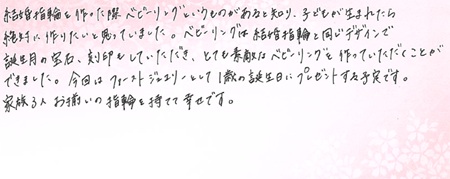 結婚指輪を作った際ベビーリングというものがあると知り、子どもが生まれたら
絶対に作りたいと思っていました。ベビーリングは結婚指輪と同じデザインで
誕生月の宝石、刻印もしていただき、とても素敵なベビーリングを作っていただくことが
できました。今回はファーストジュエリーとして1歳の誕生日にプレゼントする予定です。
家族3人お揃いの指輪を持てて幸せです。